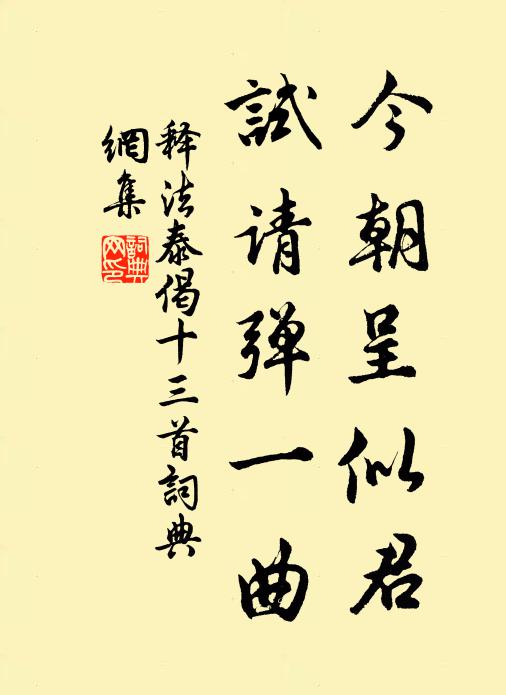 今朝呈似君
試请弹一曲
释法泰偈十三首詞典
網集
詞典
网印